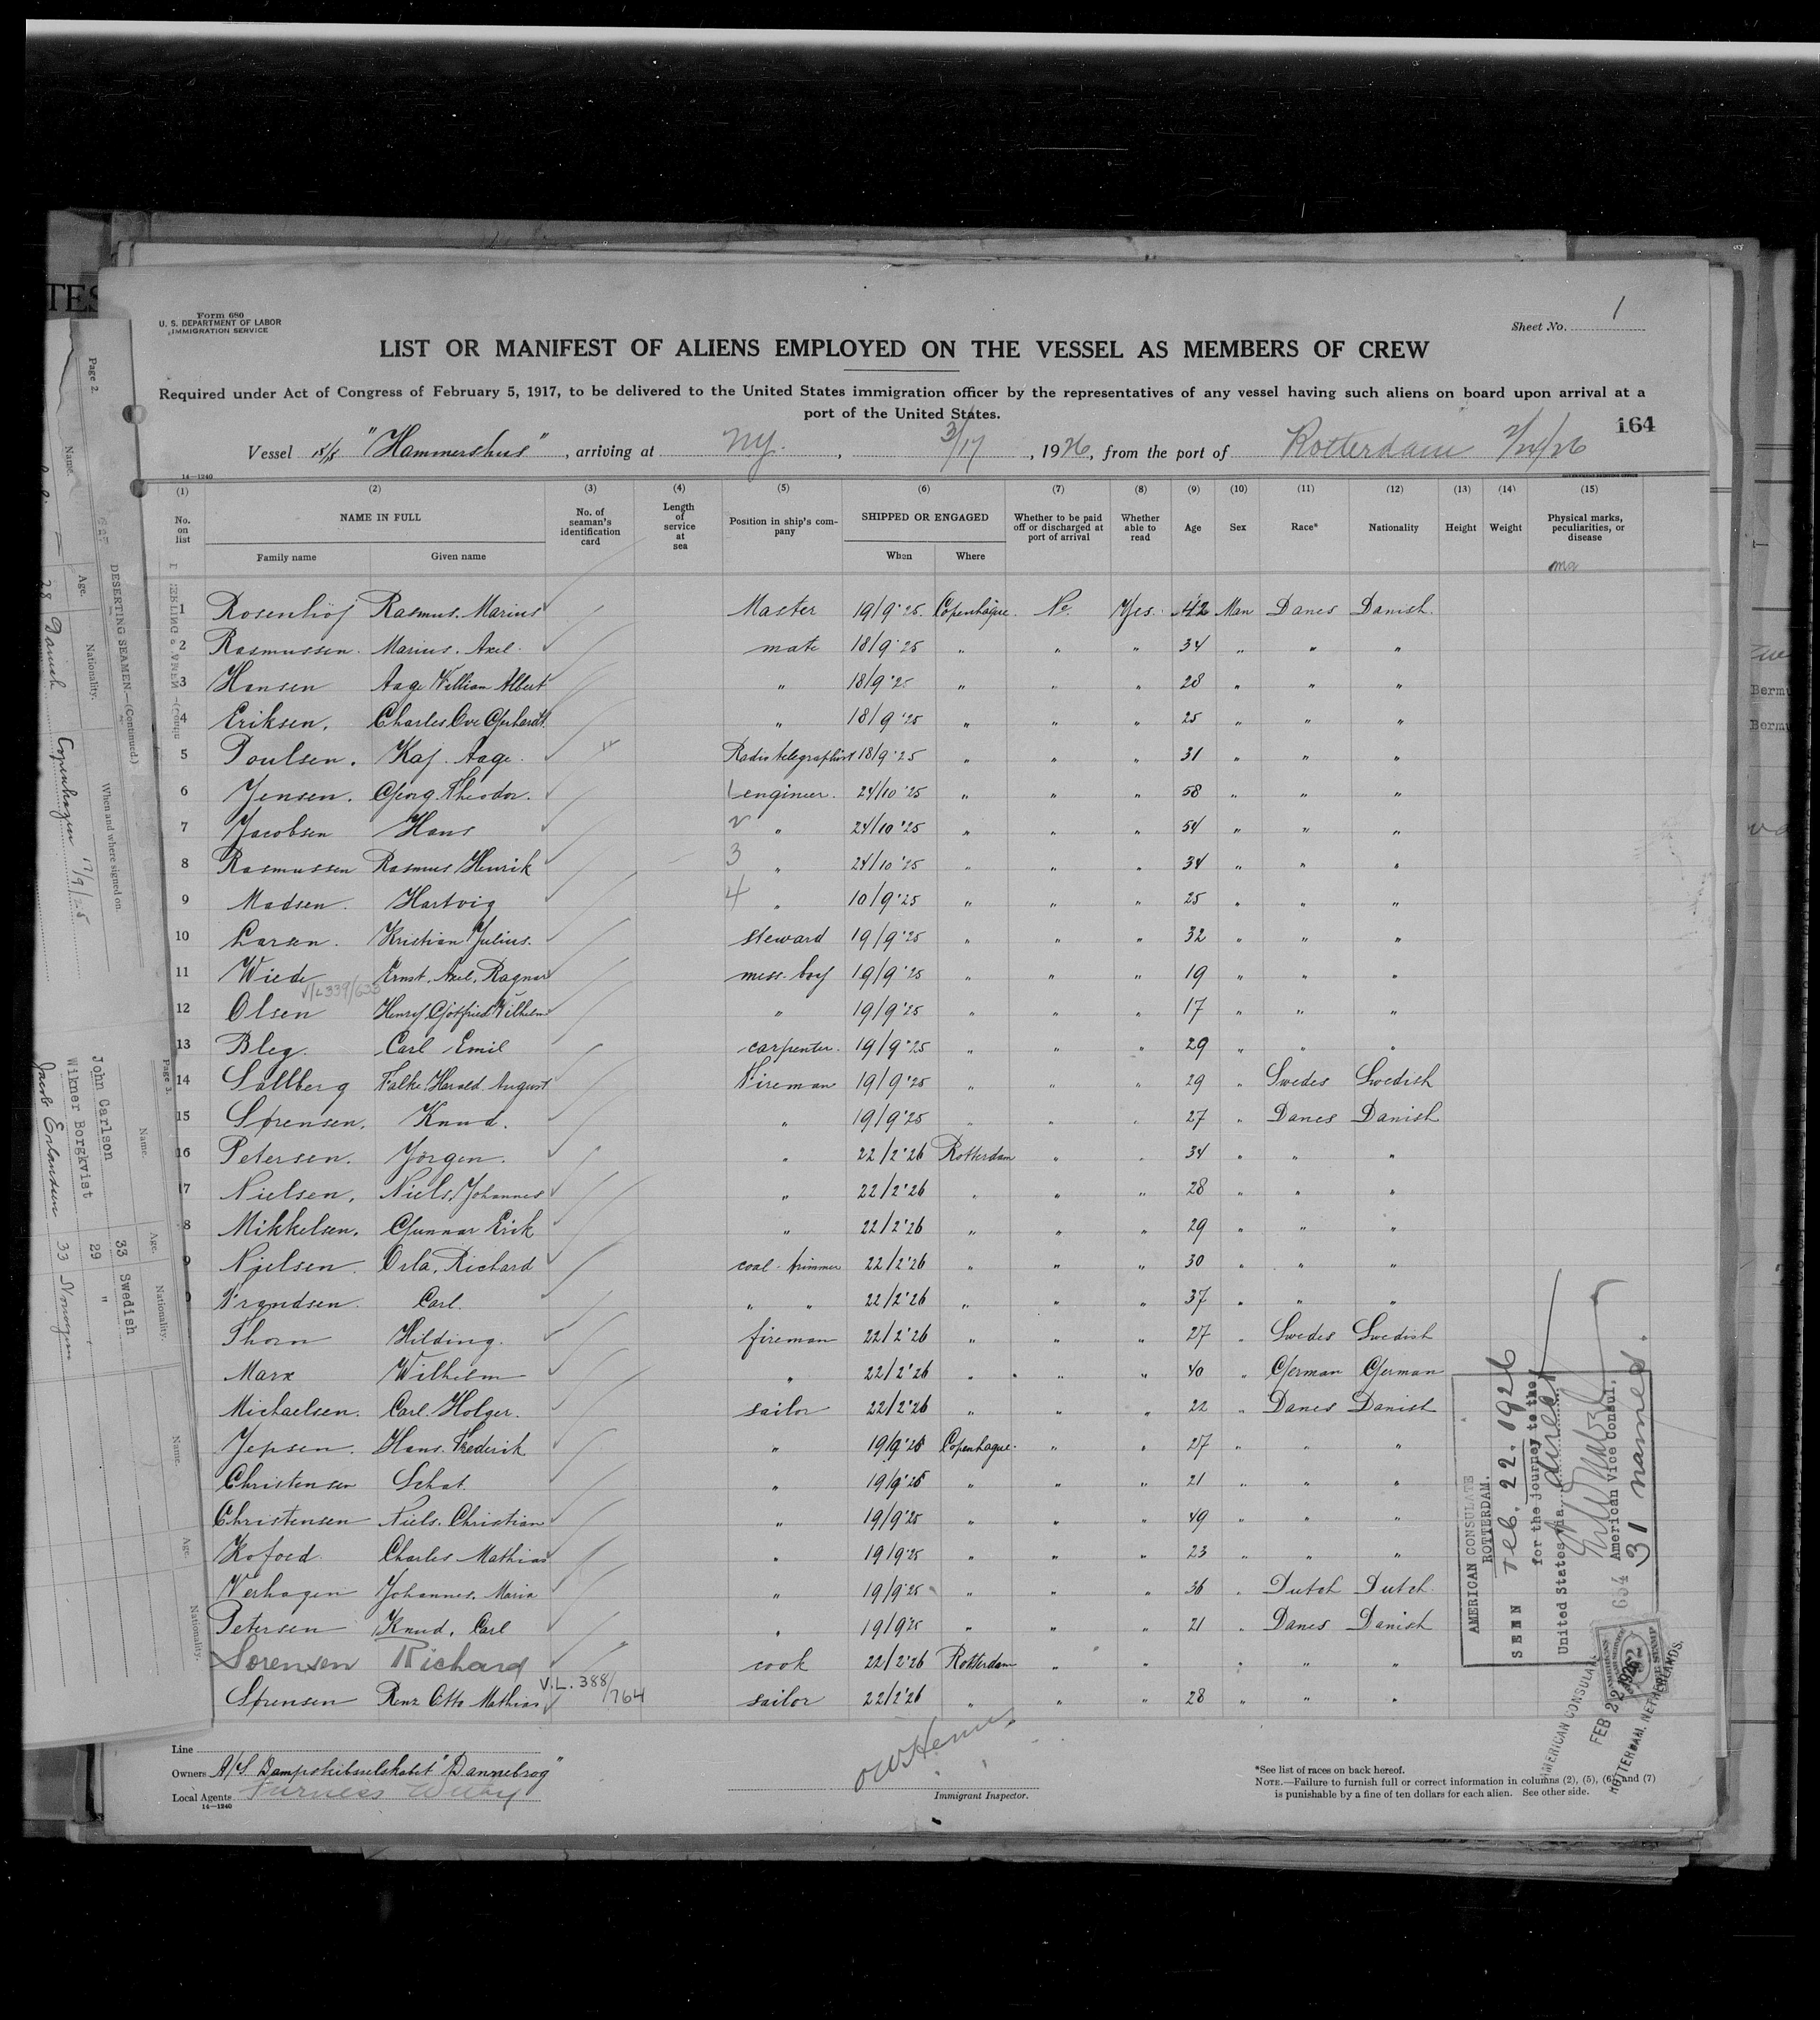 Form 680
U. S. DEPARTMENT OF LABOR
IMMIGRATION SERVICE
Sheet No. 1
LIST OR MANIFEST OF ALIENS EMPLOYED ON THE VESSEL AS MEMBERS OF CREW
Required under Act of Congress of February 5, 1917, to be delivered to the United States immigration officer by the representatives of any vessel having such aliens on board upon arrival at a
port of the United States.
164
Vessel S/S "Hammershus", arriving at NY., 3/17, 1926, from the port of Rotterdam 2/24/26
14—1240
(1) (2) (3) (4) (5) (6) (7) (8) (9) (10) (11) (12) (13) (14) (15)
No. on list NAME IN FULL No. of seaman's identification card Length of service at sea Position in ship's company SHIPPED OR ENGAGED Whether to be paid off or discharged at port of arrival Whether able to read Age Sex Race* Nationality Height Weight Physical marks, peculiarities, or disease
Family name Given name When Where
1 Rosenhöj Rasmus. Marius Master 19/9 '25. Copenhague. No. Yes. 42 Man Danes Danish.
2 Rasmussen. Marius. Axel. mate 18/9 '25 " " " 34 " " "
3 Hansen Aage William Albert " 18/9 '25 " " " 28 " " "
4 Eriksen. Charles. Ove Gerhardt. " 18/9 '25 " " " 25 " " "
5 Poulsen. Kaj. Aage. Radiotelegraphist 18/9 '25 " " " 31 " " "
6 Jensen. Georg. Theodor. 1 engineer. 24/10 '25 " " " 58 " " "
7 Jacobsen Hans 2 " 24/10 '25 " " " 54 " " "
8 Rasmussen Rasmus Henrik 3 " 24/10 '25 " " " 34 " " "
9 Madsen. Hartvig 4 " 10/9 '25 " " " 25 " " "
10 Larsen. Kristian Julius. steward 19/9 '25 " " " 32 " " "
11 Wiede Ernst. Axel. Ragnar mess-boy 19/9 '25 " " " 19 " " "
12 Olsen Henry Gotfried Vilhelm " 19/9 '25 " " " 17 " " "
13 Bleg. Carl Emil carpenter. 19/9 '25 " " " 29 " " "
14 Sallberg Falke Harald August Fireman 19/9 '25 " " " 29 " Swedes Swedish
15 Sørensen. Knud. " 19/9 '25 " " " 27 " Danes Danish
16 Petersen. Jörgen. " 22/2 '26 Rotterdam " " 34 " " "
17 Nielsen. Niels. Johannes " 22/2 '26 " " " 28 " " "
8 Mikkelsen. Gunnar Erik " 22/2 '26 " " " 29 " " "
9 Nielsen. Orla. Richard coal-trimmer 22/2 '26 " " " 30 " " "
Frandsen. Carl. " " 22/2 '26 " " " 37 " " "
Thorn Hilding. fireman 22/2 '26 " " " 27 " Swedes Swedish
Marx Wilhelm " 22/2 '26 " " " 40 " German German
Michaelsen. Carl. Holger. sailor 22/2 '26 " " " 22 " Danes Danish
Jepsen. Hans. Frederik " 19/9 '25 Copenhague. " " 27 " " "
Christensen Schat. " 19/9 '25 " " " 21 " " "
Christensen Niels. Christian " 19/9 '25 " " " 49 " " "
Kofoed. Charles Mathias " 19/9 '25 " " " 23 " " "
Verhagen Johannes. Maria " 19/9 '25 " " " 36 " Dutch Dutch
Petersen Knud. Carl " 19/9 '25 " " " 21 " Danes Danish
Sorensen Richard cook 22/2 '26 Rotterdam " " " " "
V.L. 388/764
Sørensen Otto Mathias sailor 22/2 '26 " " " 28 " " "
AMERICAN CONSULATE
ROTTERDAM.
SEEN Feb. 22. 1926
for the journey to the
United States, via direct
American Vice Consul.
31 named.
AMERICAN CONSULATE
FEB 22 1926
ROTTERDAM, NETHERLANDS.
Line
Owners A/S. Dampskibsselskabet "Dannebrog"
Local Agents Furness Withy
14—1240
Immigrant Inspector.
*See list of races on back hereof.
NOTE.—Failure to furnish full or correct information in columns (2), (5), (6) and (7)
is punishable by a fine of ten dollars for each alien. See other side.
Page 2.
DESERTING SEAMEN—(Continued.)
Name. Age. Nationality. When and where signed on.
28 Danish Copenhagen 17/9/25
Page 3.
Name. Age. Nationality.
John Carlson 33 Swedish
Wikner Borgkvist 29 "
Jacob Erlandsen 33 Norwegian
Name. Age. Nationality.